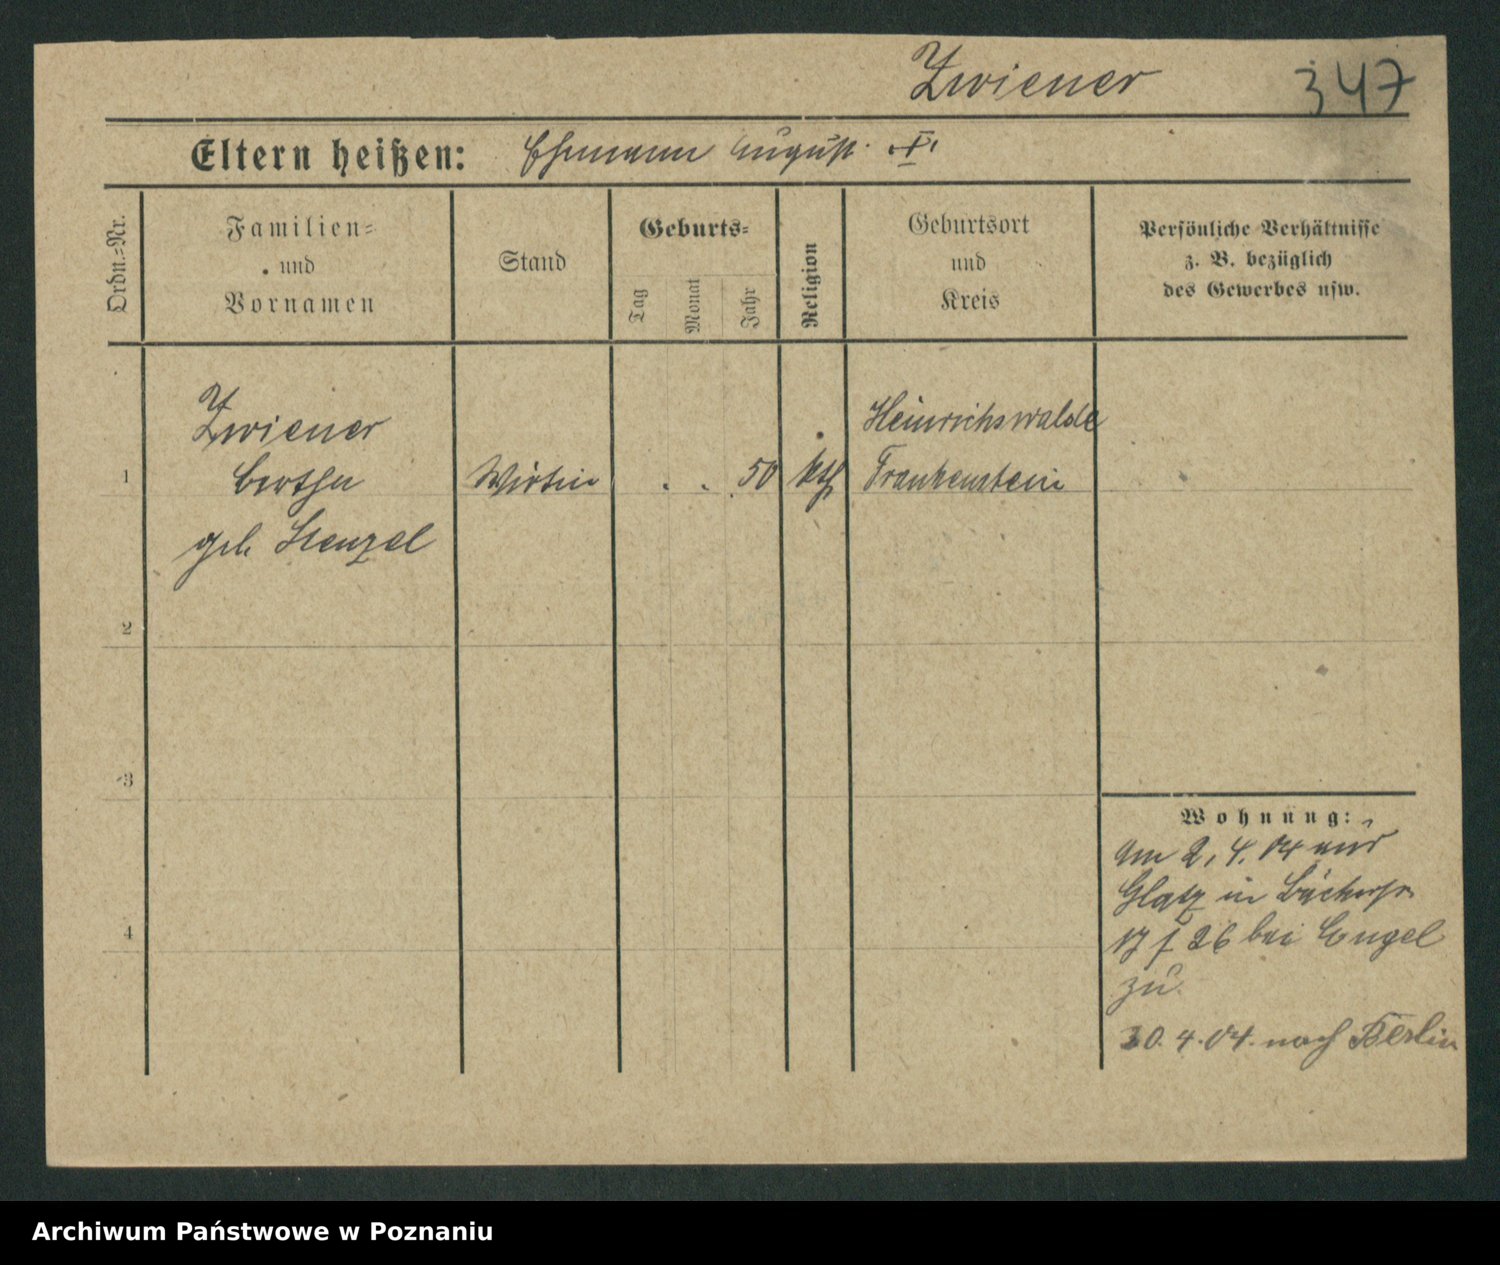 Zwiener
347
Eltern heißen: Ehemann August †.
Ordn.-Nr.
Familien-
und
Vornamen
Stand
Geburts-
Tag
Monat
Jahr
Religion
Geburtsort
und
Kreis
Persönliche Verhältnisse
z. B. bezüglich
des Gewerbes usw.
1
Zwiener
Bertha
geb Stenzel
Wirtin
. . 50
kth
Heinrichswalde
Frankenstein
2
3
4
Wohnung:
Am 2. 4. 04 aus
Glatz in Bäckerstr.
17 f 26 bei Engel
zu.
30. 4. 04. nach Berlin
Archiwum Państwowe w Poznaniu